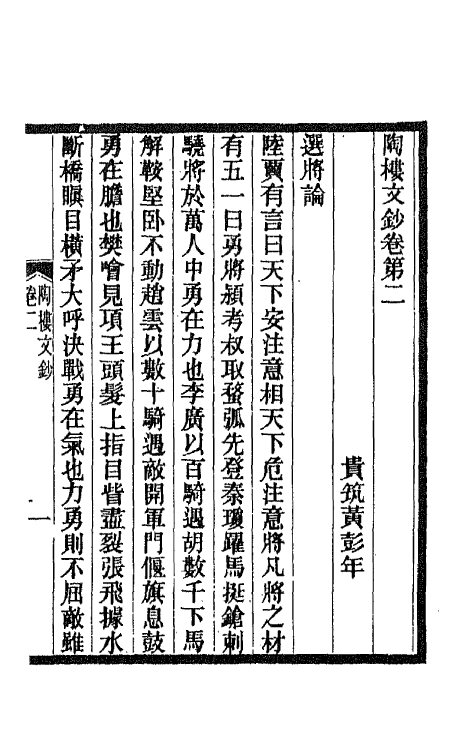 陶樓文鈔卷第二
貴筑黃彭年
選將論
陸賈有言曰天下安注意相天下危注意將凡將之材
有五一曰勇將潁考叔取蝥弧先登秦瓊躍馬挺鎗刺
驍將於萬人中勇在力也李廣以百騎遇胡數千下馬
解鞍堅卧不動趙雲以數十騎遇敵開軍門偃旗息鼓
勇在膽也樊噲見項王頭髮上指目眥盡裂張飛據水
斷橋瞋目橫矛大呼決戰勇在氣也力勇則不屈敵雖
陶樓文鈔
卷二
一